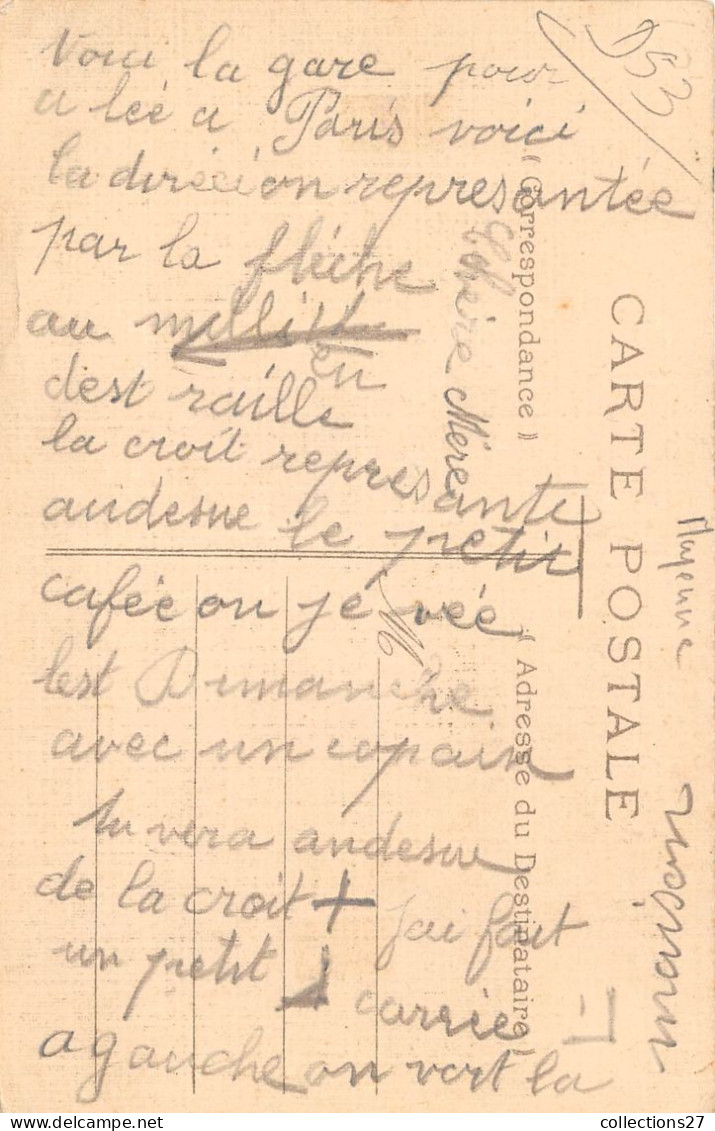 Voici la gare pour
a lée a Paris voici
la direciion represantée
par la flèche
au millieu
dest raille
la croit represante
andesue le petit
cafée ou je vée
lest Dimanche
avec un copain
tu vera andesue
de la croit + jai fait
un petit carrée
a gauche on voit la
Chère Mère
M
953
( Correspondance )
( Adresse du Destinataire )
CARTE POSTALE
Mayenne
collections27